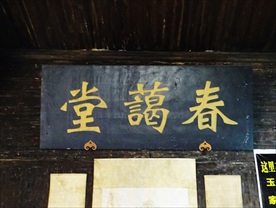 春藹堂
这里
玉